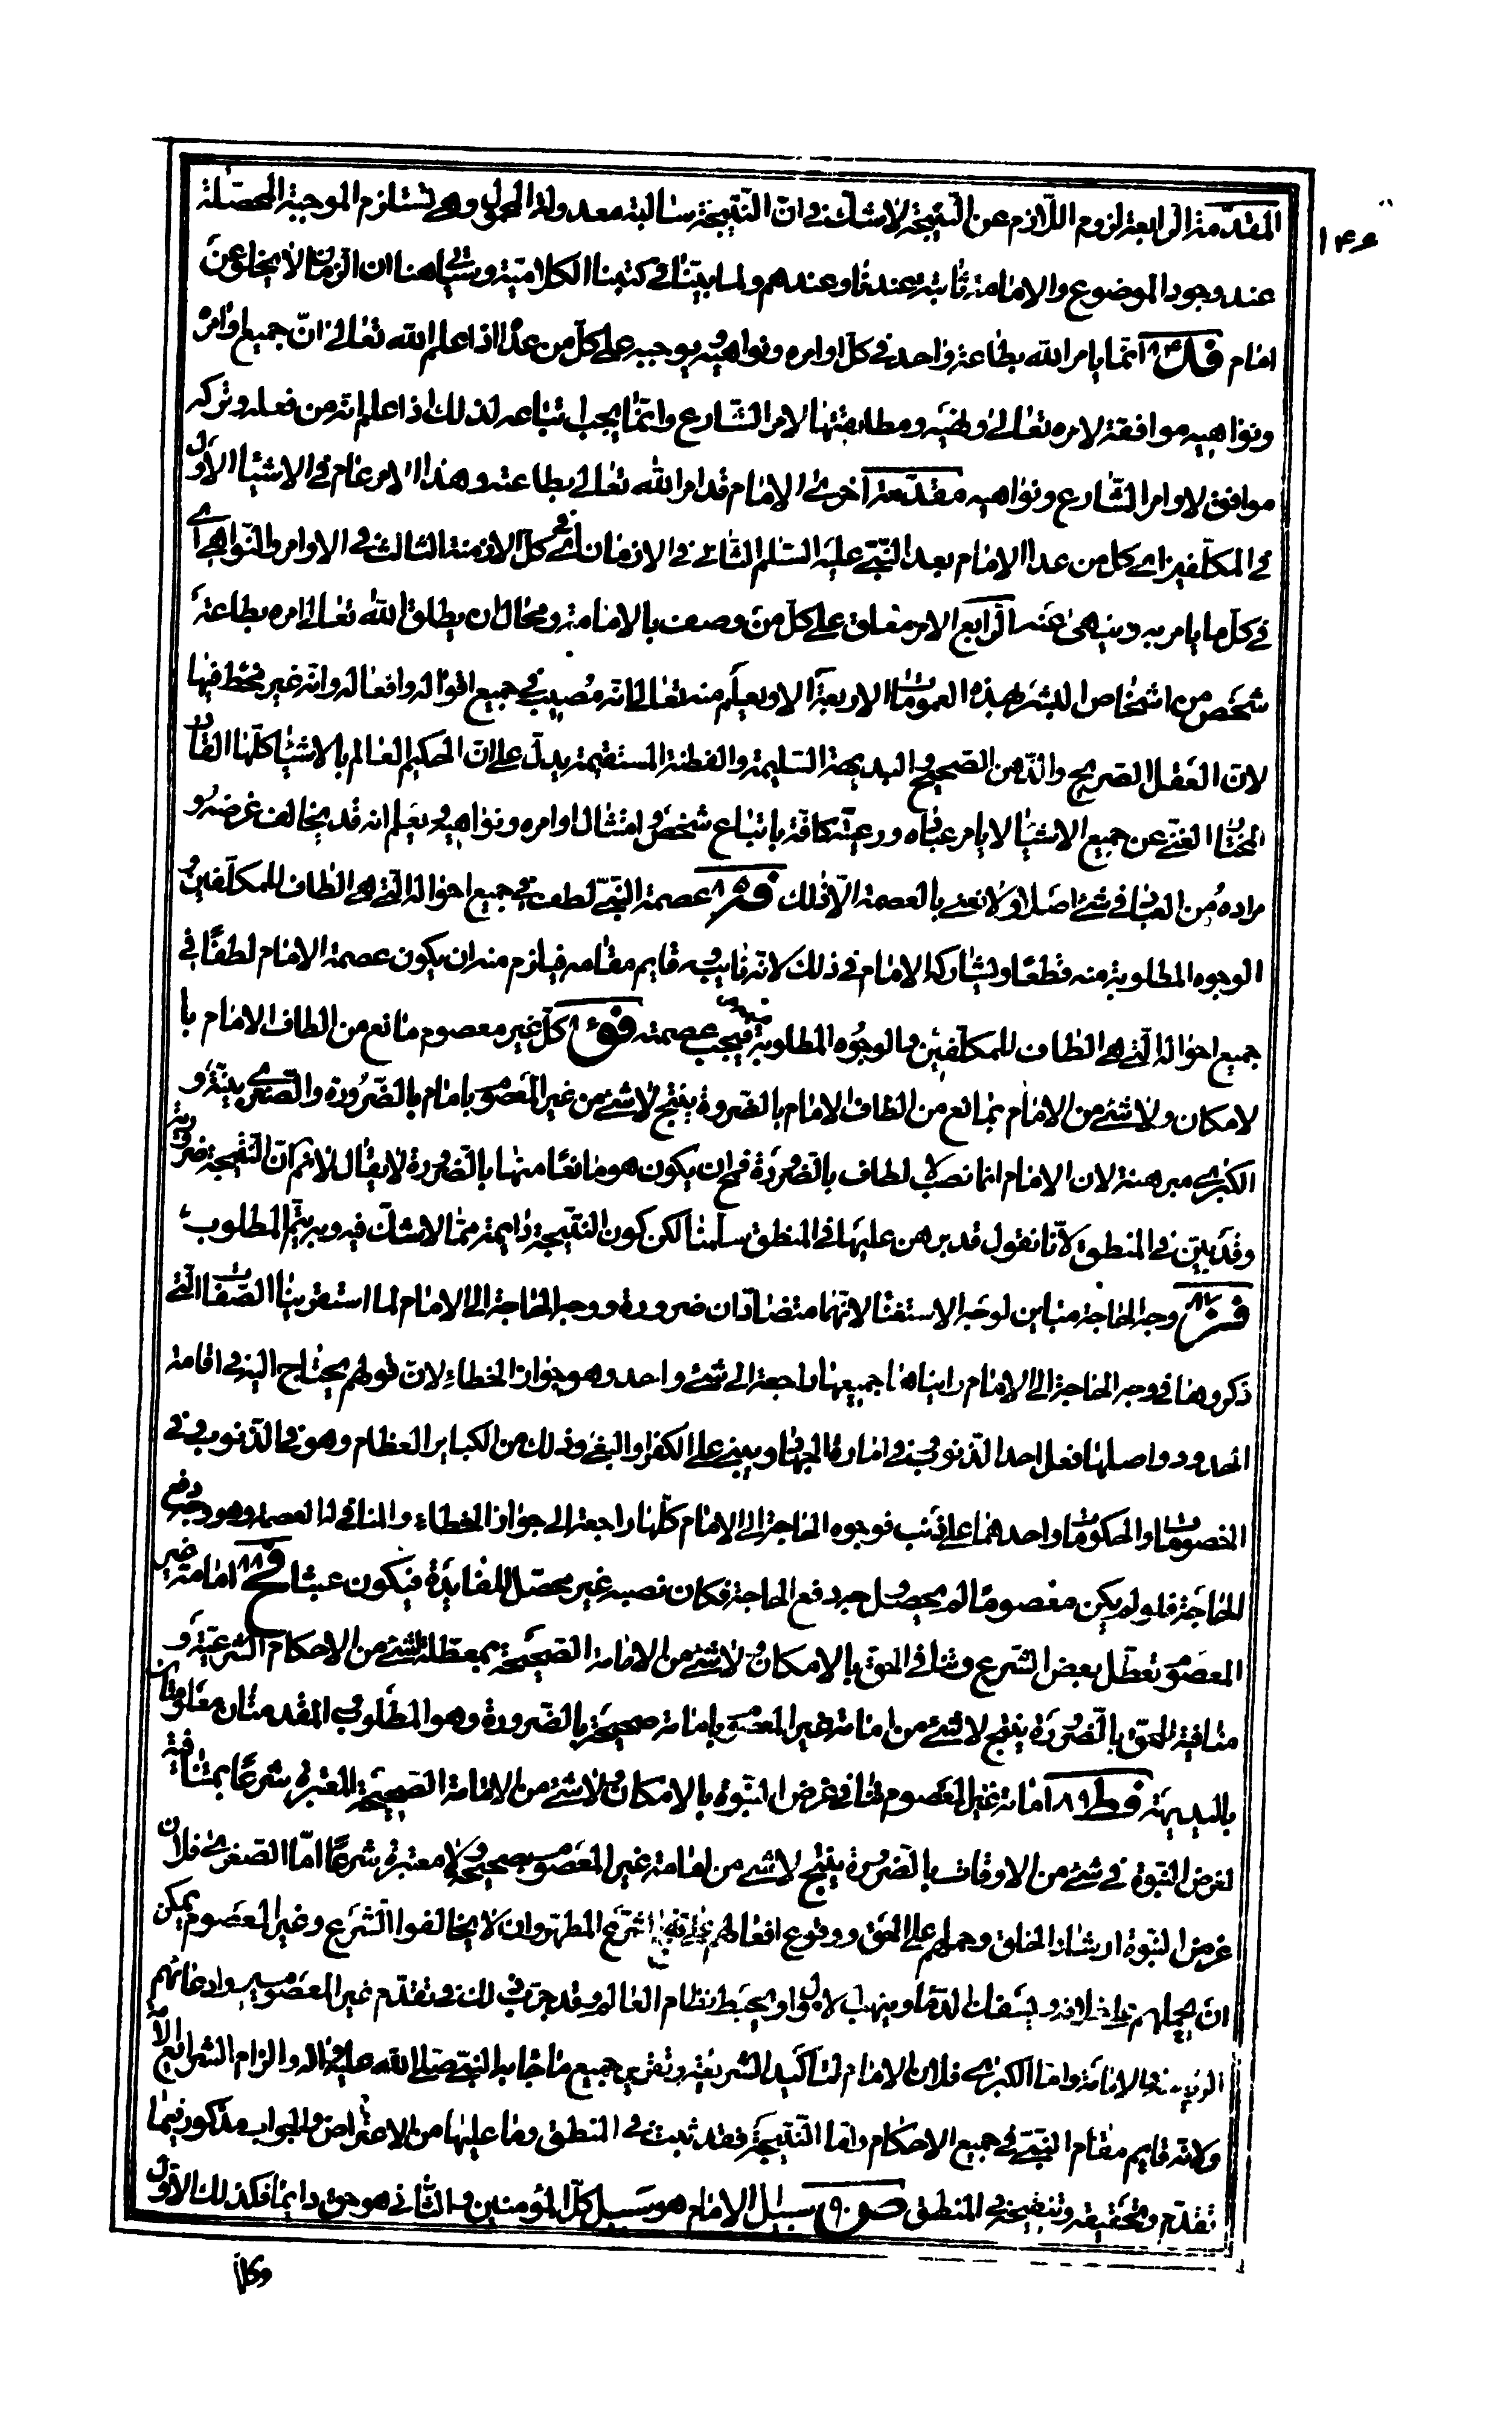 ١٤٦
المقدّمة الرابعة لزوم اللّازم عن النّتيجة لاشكّ فى انّ النّتيجة سالبة معدولة المحمول وهى تستلزم الموجبة المحصّلة
عند وجود الموضوع والامامة ثابتة عندنا وعندهم ولما بيّنّا فى كتبنا الكلاميّة وسيأتى هنا ان الزمان لا يخلو عن
امام فد ٨٤ انّما يامر الله بطاعة واحد فى كلّ اوامره ونواهيه ويوجبه على كلّ من عداه اذا علم الله تعالى انّ جميع اوامره
ونواهيه موافقة لامره تعالى ونهيه ومطابقتها لامر الشّارع وانّما يجب اتباعه لذلك اذا علم انه من فعله وتركه
موافق لاوامر الشّارع ونواهيه مقدّمة اخرى الامام قد امر الله تعالى بطاعته وهذا الامر عام فى الاشياء الاوّل
فى المكلّفين اى كل من عدا الامام بعد النّبىّ عليه السّلم الثّانى فى الازمان اى فى كلّ الازمنة الثالث فى الاوامر والنّواهى اى
فى كلّ ما يامر به وينهى عنه الرابع الامر معلق على كلّ من وصف بالامامة ومحال ان يطلق الله تعالى امره بطاعة
شخص من اشخاص البشر بهذه العمومات الاربعة الا ويعلم منه تعالى انه مصيب فى جميع اقواله وافعاله وانّه غير مخط فيها
لانّ العقل الصّريح والذّهن الصّحيح والبديهة السّليمة والفطنة المستقيمة يدلّ على انّ الحكيم العالم بالاشياء كلّها القادر
المختار الغنىّ عن جميع الاشياء لا يامر عباده ورعيّته كافّة باتباع شخص وامتثال اوامره ونواهيه ويعلم انه قد يخالف غرضه و
مراده من العباد فى شئ اصلا ولا نعنى بالعصمة الّا ذلك فه ٨٥ عصمة النّبىّ لطف فى جميع احواله الّتى هى الطاف للمكلّفين و
الوجوه المطلوبة منه قطعًا ويشاركه الامام فى ذلك لانّه نايبه وقايم مقامه فيلزم منه ان يكون عصمة الامام لطفًا فى
جميع احواله الّتى هى الطاف للمكلّفين والوجوه المطلوبة فيجب عصمته فو ٨٦ كلّ غير معصوم مانع من الطاف الامام با
لامكان ولا شئ من الامام بمانع من الطاف الامام بالضّرورة ينتج لا شئ من غير المعصوم بامام بالضّرورة والصّغرى بيّنة و
الكبرى مبرهنة لان الامام انما نصب لالطاف بالضّرورة فمح ان يكون هو مانعًا منها بالضّرورة لا يقال لا نم انّ النّتيجة ضروريّة
وقد بيّن فى المنطق لانّا نقول قد برهن عليها فى المنطق سلّمنا لكن كون النّتيجة دايمة ممّا لا شكّ فيه وبه يتمّ المطلوب
فز ٨٧ وجه الحاجة مباين لوجه الاستغناء لانّهما متضادّان ضرورة ووجه الحاجة الى الامام لما استقرينا الصّفات الّتى
ذكروها فى وجه الحاجة الى الامام راينا جميعها راجعة الى شئ واحد وهو جواز الخطاء لانّ قولهم يحتاج اليه فى اقامة
الحدود واصلها فعل احد الذّنوب وفى امارة الجهاد ويبنى على الكفر او البغى وذلك من الكباير العظام وهو فى الذّنوب وفى
الخصومات والحكومات واحدهما على ذنب فوجوه الحاجة الى الامام كلّها راجعة الى جواز الخطاء والمنافى له العصمة وهو وجه دفع
للحاجة فلو لم يكن معصومًا لم يحصل جهة دفع الحاجة فكان نصبه غير محصّل للفايدة فيكون عبثا فح ٨٨ امامة غير
المعصوم تعطّل بعض الشّرع وتنافى الحق بالامكان ولا شئ من الامامة الصّحيحة بمعطّلة لشئ من الاحكام الشّرعيّة و
منافية للحقّ بالضّرورة ينتج لا شئ من امامة غير المعصوم بامامة صحيحة بالضّرورة وهو المطلوب المقدمتان معلومتان
بالبديهة فط ٨٩ امامة غير المعصوم تنافى غرض النّبوة بالامكان ولا شئ من الامامة الصّحيحة المعتبرة شرعًا بمنافية
لغرض النّبوة فى شئ من الاوقات بالضّرورة ينتج لا شئ من امامة غير المعصوم بصحيحة ولا معتبرة شرعًا امّا الصّغرى فلان
غرض النّبوة ارشاد الخلق وحملهم على الحق ووقوع افعالهم الشّرع المطهّر وان لا يخالفوا الشّرع وغير المعصوم يمكن
ان يحملهم على خلافه ويسفك الدّماء وينهب الاموال ويحبط نظام العالم وقد جرت فى ذلك فى تقدّم غير المعصومين وادعائهم
الامامة وامّا الكبرى فلان الامام لتاكيد الشريعة وتقرير جميع ما جاء به النّبىّ صلّى الله عليه واله والزام الشرايع الامّة
ولانّه قايم مقام النّبىّ فى جميع الاحكام وامّا النّتيجة فقد ثبت فى المنطق وما عليها من الاعتراض والجواب مذكور فيما
تقدّم وتحقيقه وتنقيحه فى المنطق ص ٩٠ سبيل الامام هو سبيل كلّ المؤمنين والثّانى هو حق دايما فكذلك الاوّل
وكلّ